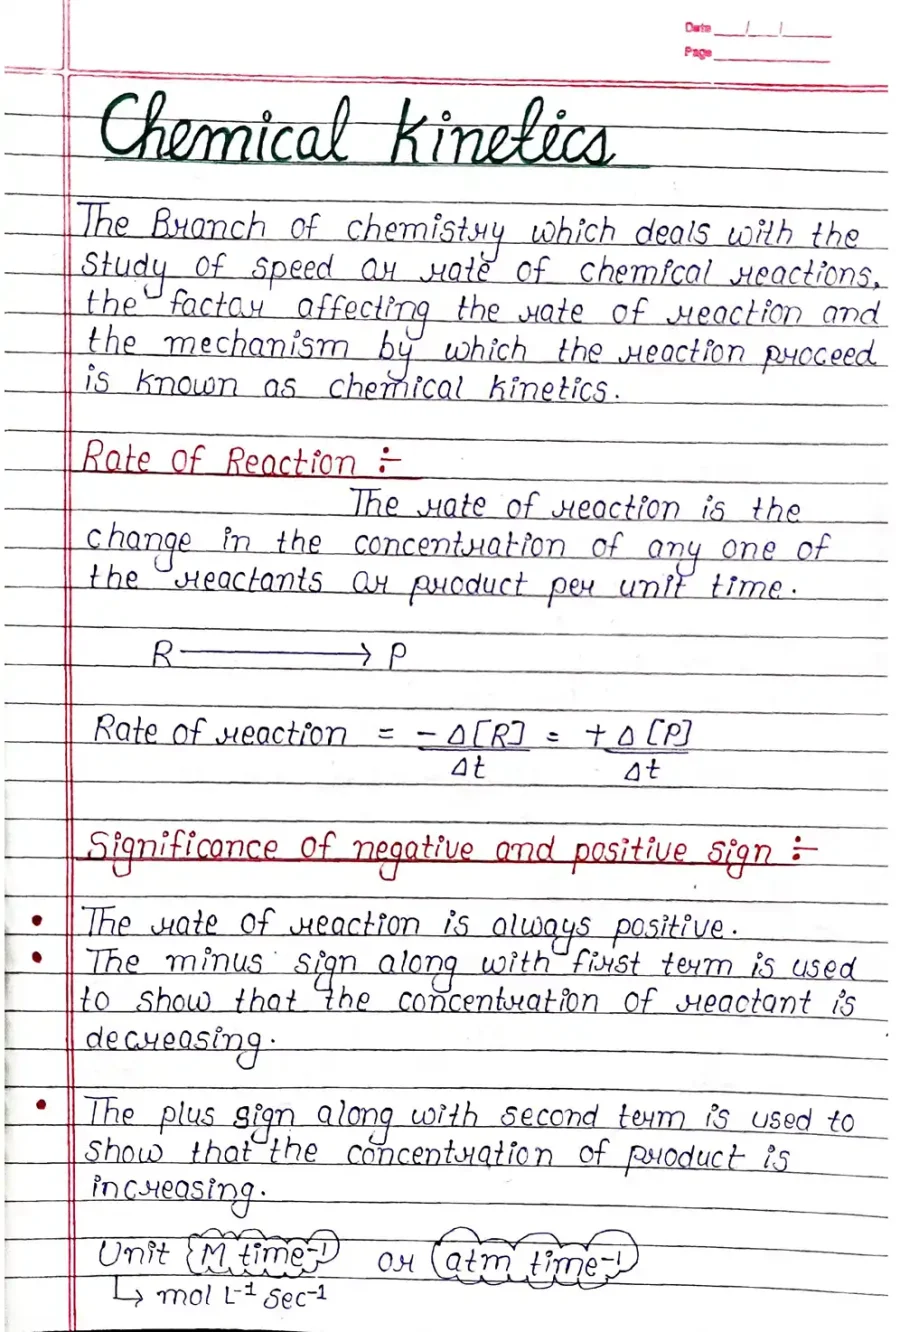 Date / /
Page
Chemical Kinetics
The Branch of chemistry which deals with the
study of speed or rate of chemical reactions,
the factor affecting the rate of reaction and
the mechanism by which the reaction proceed
is known as chemical kinetics.
Rate of Reaction ÷
The rate of reaction is the
change in the concentration of any one of
the reactants or product per unit time.
R → P
Rate of reaction = -Δ[R]/Δt = +Δ[P]/Δt
Significance of negative and positive sign :-
• The rate of reaction is always positive.
• The minus sign along with first term is used
to show that the concentration of reactant is
decreasing.
• The plus sign along with second term is used to
show that the concentration of product is
increasing.
Unit M time⁻¹ or atm time⁻¹
↳ mol L⁻¹ sec⁻¹